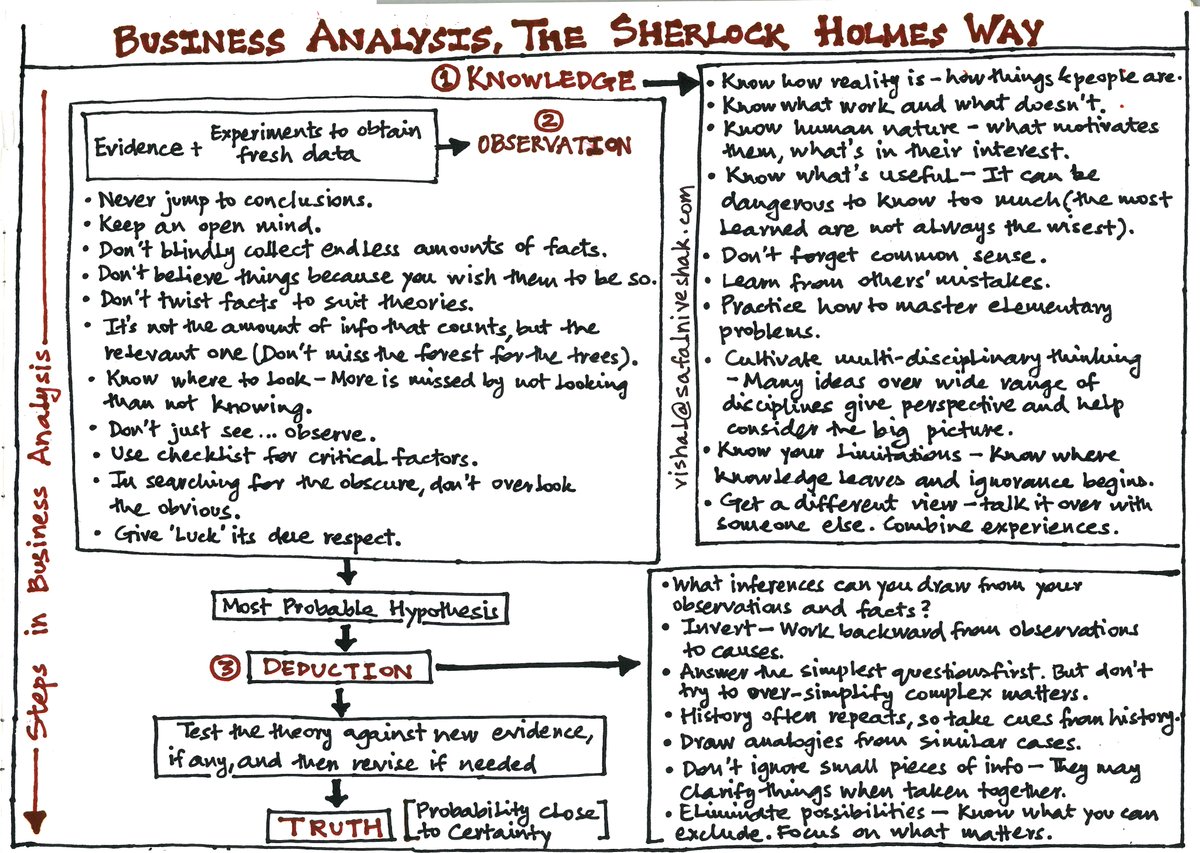 BUSINESS ANALYSIS, THE SHERLOCK HOLMES WAY
① KNOWLEDGE
• Know how reality is – how things & people are.
• Know what work and what doesn't.
• Know human nature – what motivates
them, what's in their interest.
• Know what's useful – It can be
dangerous to know too much (the most
learned are not always the wisest).
• Don't forget common sense.
• Learn from others' mistakes.
• Practice how to master elementary
problems.
• Cultivate multi-disciplinary thinking
– Many ideas over wide range of
disciplines give perspective and help
consider the big picture.
• Know your limitations – Know where
knowledge leaves and ignorance begins.
• Get a different view – talk it over with
someone else. Combine experiences.
Evidence + Experiments to obtain
fresh data
②
OBSERVATION
• Never jump to conclusions.
• Keep an open mind.
• Don't blindly collect endless amounts of facts.
• Don't believe things because you wish them to be so.
• Don't twist facts to suit theories.
• It's not the amount of info that counts, but the
relevant one (Don't miss the forest for the trees).
• Know where to look – More is missed by not looking
than not knowing.
• Don't just see... observe.
• Use checklist for critical factors.
• In searching for the obscure, don't overlook
the obvious.
• Give 'Luck' its due respect.
vishal@safalniveshak.com
Steps in Business Analysis
Most Probable Hypothesis
③ DEDUCTION
• What inferences can you draw from your
observations and facts?
• Invert – Work backward from observations
to causes.
• Answer the simplest questions first. But don't
try to over-simplify complex matters.
• History often repeats, so take cues from history.
• Draw analogies from similar cases.
• Don't ignore small pieces of info – They may
clarify things when taken together.
• Eliminate possibilities – Know what you can
exclude. Focus on what matters.
Test the theory against new evidence,
if any, and then revise if needed
TRUTH
[Probability close
to Certainty]